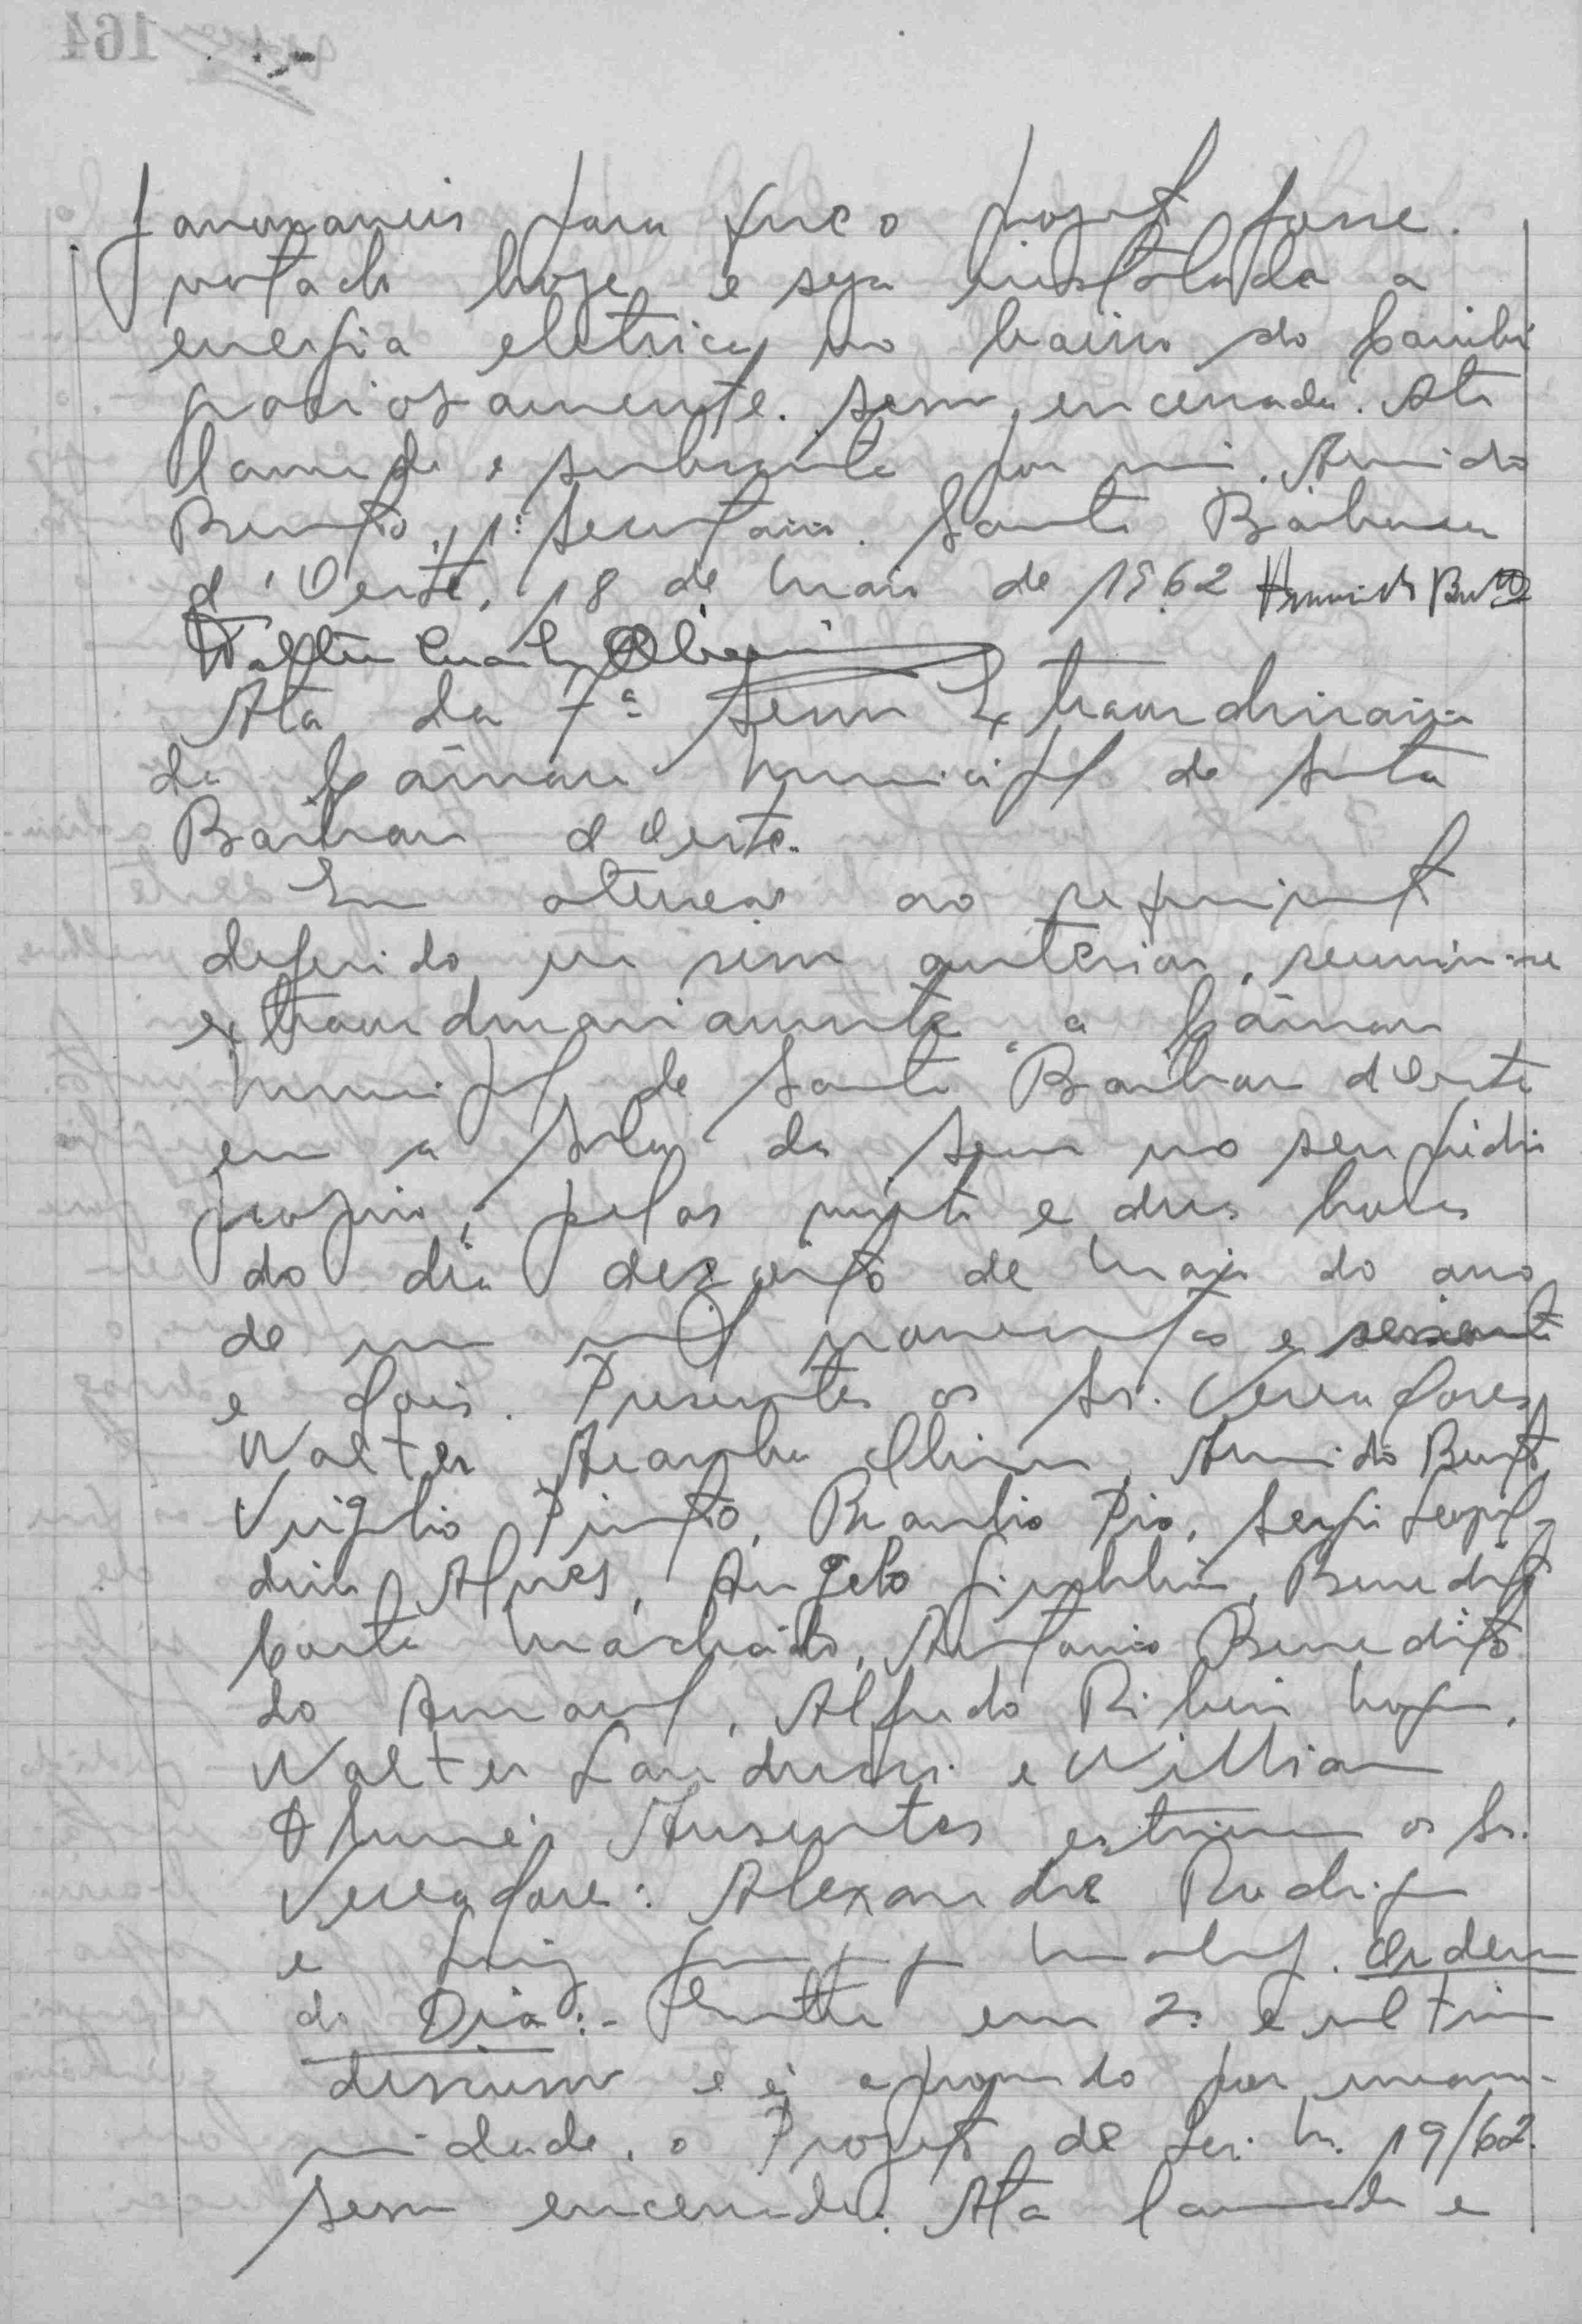 para que o projeto fosse
votado hoje e seja instalada a
energia eletrica no bairro do
Sessão encerrada. Ata
lavrada e subscrita por mim, Armindo
1º Secretario. Santa Bárbara
d'Oeste, 18 de Maio de 1962
Walter
Ata da 7ª Sessão Extraordinária
da Câmara Municipal de Santa
Barbara d'Oeste.
Em atenção ao requerimento
deferido em sessão anterior, reuniu-se
extraordinariamente a Câmara
Municipal de Santa Barbara d'Oeste
em a Sala da Sessão no seu prédio
proprio, pelas vinte e duas horas
do dia dezoito de Maio do ano
de um mil novecentos e sessenta
e dois. Presentes os Srs. Vereadores
Walter Aranha Oliveira, Armindo
Virgilio Pinto, Braulio Pio, Sergio Leopol-
dino Alves, Angelo Benedito
Costa Machado, Antonio Benedito
do Amaral, Alfredo Ribeiro
Walter Landucci e Willian
Ausentes estiveram os Srs.
Vereadores: Alexandre Rodrigues
e Luiz Maluf. Ordem
do Dia:- em 2ª e ultima
discussão e é aprovado por unani-
midade, o Projeto de Lei n. 19/62.
Sessão encerrada. Ata lavrada e